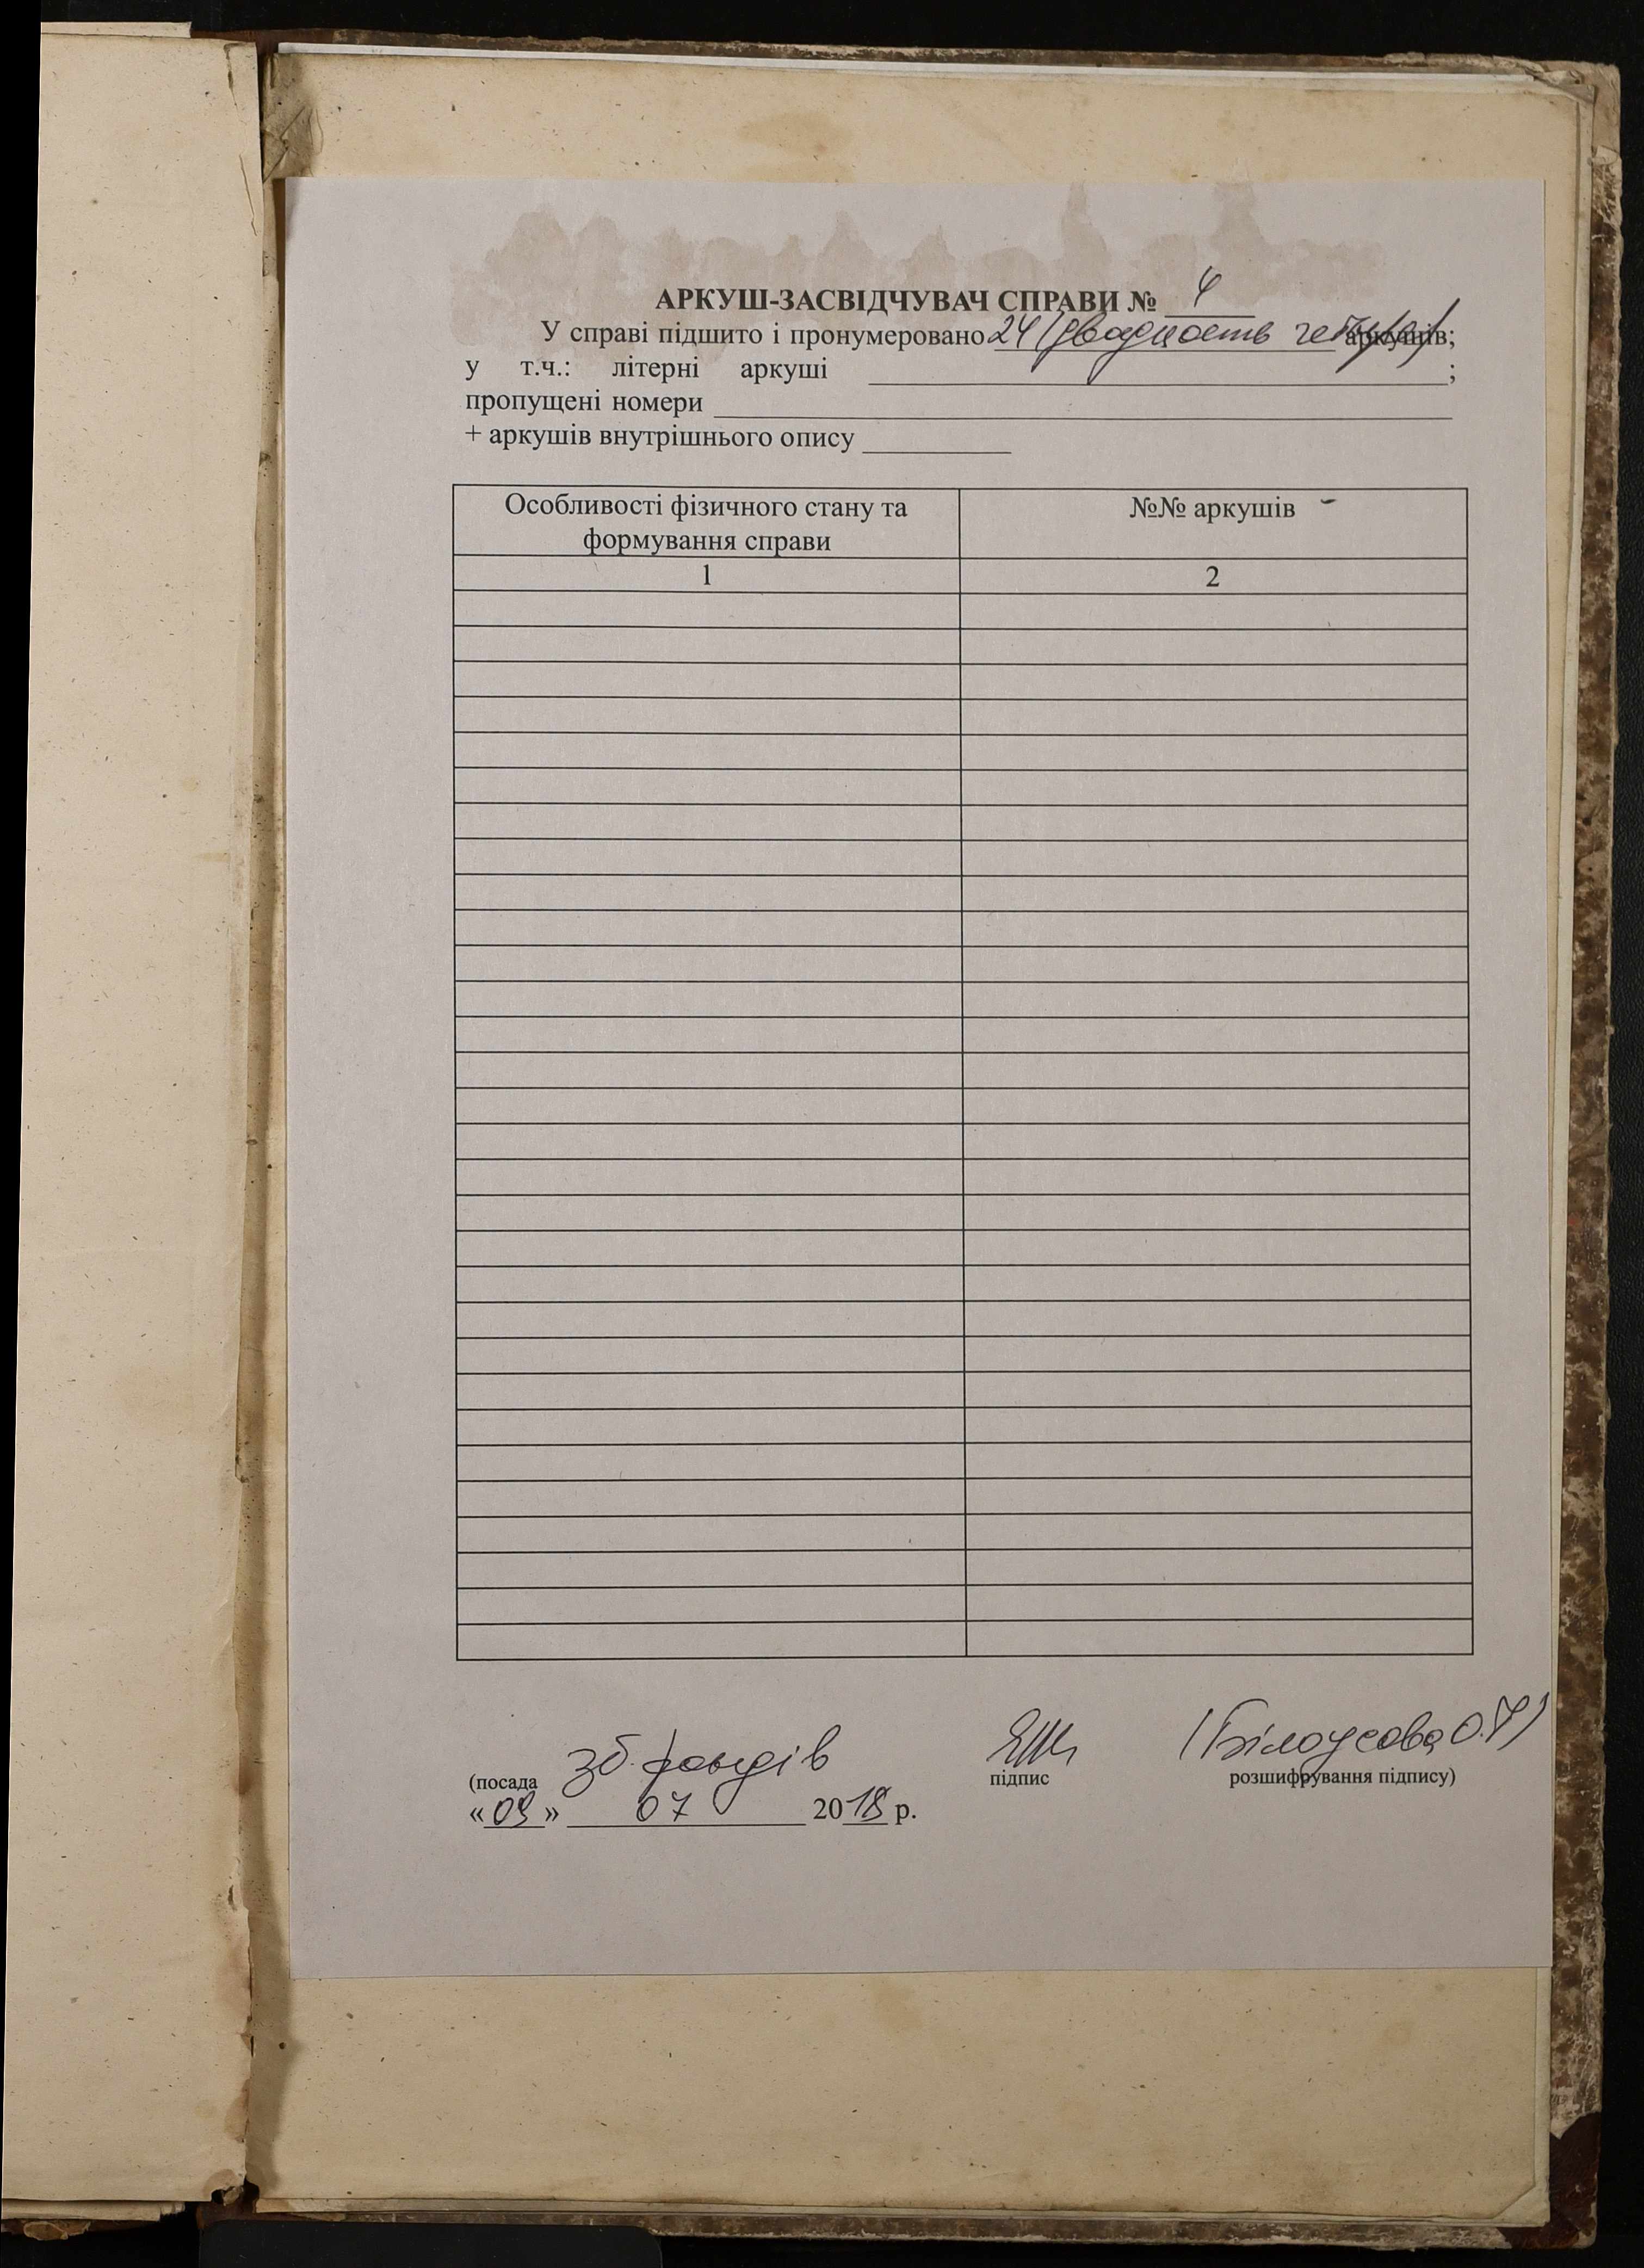 АРКУШ-ЗАСВІДЧУВАЧ СПРАВИ № 4
У справі підшито і пронумеровано 24 (двадцать четыре) аркушів;
у т.ч.: літерні аркуші ;
пропущені номери
+ аркушів внутрішнього опису
Особливості фізичного стану та
формування справи
№№ аркушів
1 2
зб. фондів
(Білоусова О.
(посада підпис розшифрування підпису)
«09» 07 2018 р.